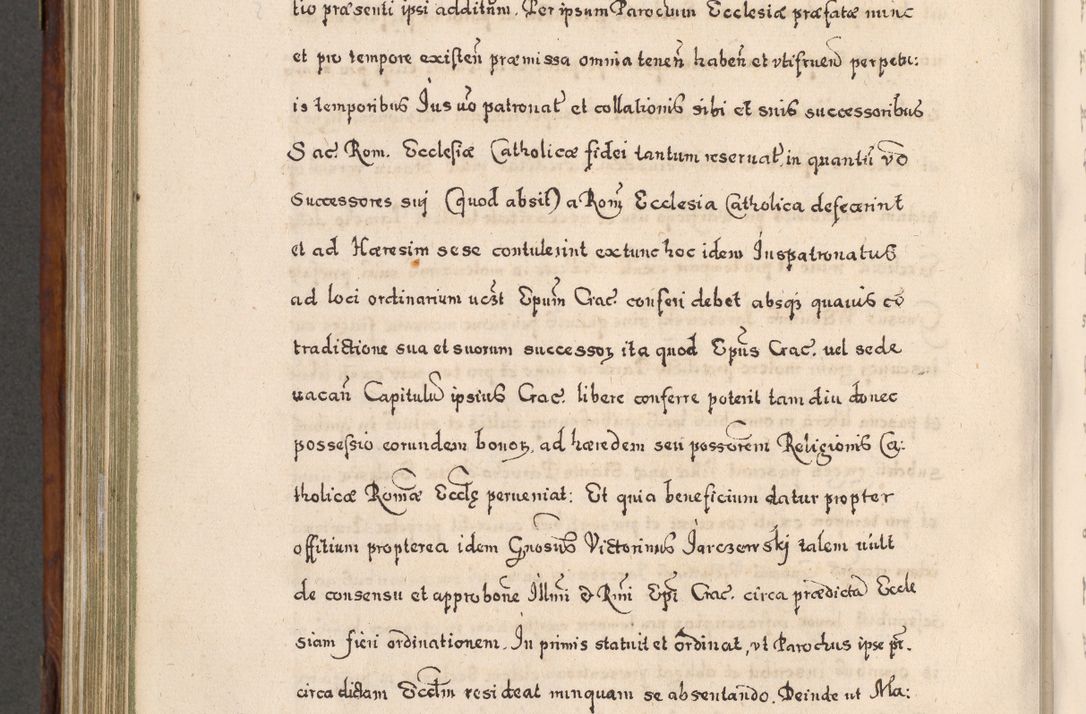 tio præsenti ipsi additum. Per ipsum Parochum Ecclesiæ præfatæ nunc
et pro tempore existeñ præmissa omnia teneñ habeñ et utifrueñ perpetu:
is temporibus Jus uo patronat9 et collationis sibi et suis successoribus
Sac. Rom. Ecclesiæ Catholicæ fidei tantum reseruat, in quantũ vo
Successores sui (quod absit) a Rom Ecclesia Catholica defecerint
et ad Hæresim sese contulerint extunc hoc idem Juspatronatus
ad loci ordinarium ucst Epum Crac. conferi debet absqz quauis cō
tradictione sua et suorum successorz ita quod Epus Crac. uel sede
uacañ Capitulũ ipsius Crac. libere conferre poterit tam diu donec
possessio eorundem bonorz, ad hæredem seu possorem Religionis Ca:
tholicæ Romæ Eccle perueniat: Et quia beneficium datur propter
offitium propterea idem Gnosus Victorinus Jarczewski talem uult
de consensu et approbone Illmi & Rmi Epi Crac. circa prædictã Eccle
siam fieri ordinationem. In primis statuit et ordinat, vt Parochus ipse pr.
circa dictam Ecclm resideat nunquam se absentando. Deinde ut Ma: